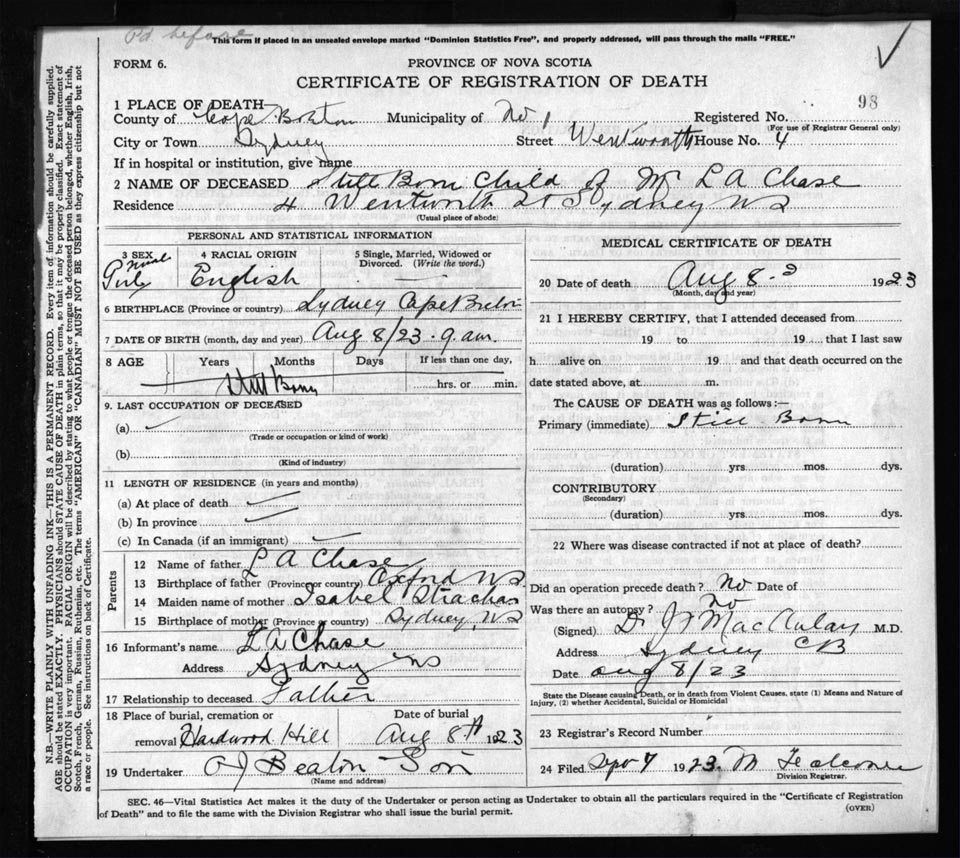 Pd before
This form if placed in an unsealed envelope marked "Dominion Statistics Free", and properly addressed, will pass through the mails "FREE."
FORM 6.
PROVINCE OF NOVA SCOTIA
CERTIFICATE OF REGISTRATION OF DEATH
98
1 PLACE OF DEATH
County of Cape Breton Municipality of No 1 Registered No.
(For use of Registrar General only)
City or Town Sydney Street Wentworth House No. 4
If in hospital or institution, give name
2 NAME OF DECEASED Still Born Child of Mr L A Chase
Residence 4 Wentworth St Sydney NS
(Usual place of abode)
PERSONAL AND STATISTICAL INFORMATION
3 SEX 4 RACIAL ORIGIN 5 Single, Married, Widowed or Divorced. (Write the word.)
English
6 BIRTHPLACE (Province or country) Sydney Cape Breton
7 DATE OF BIRTH (month, day and year) Aug 8/23 . 9 am.
8 AGE Years Months Days If less than one day,
Still Born hrs. or min.
9. LAST OCCUPATION OF DECEASED
(a)
(Trade or occupation or kind of work)
(b)
(Kind of industry)
11 LENGTH OF RESIDENCE (in years and months)
(a) At place of death
(b) In province
(c) In Canada (if an immigrant)
Parents
12 Name of father L A Chase
13 Birthplace of father (Province or country) Oxford NS
14 Maiden name of mother Isabel Strachan
15 Birthplace of mother (Province or country) Sydney, NS
16 Informant's name L A Chase
Address Sydney NS
17 Relationship to deceased Father
18 Place of burial, cremation or Date of burial
removal Hardwood Hill Aug 8th 1923
19 Undertaker A J Beaton Son
(Name and address)
MEDICAL CERTIFICATE OF DEATH
20 Date of death Aug 8 1923
(Month, day and year)
21 I HEREBY CERTIFY, that I attended deceased from
19 to 19 that I last saw
h alive on 19 and that death occurred on the
date stated above, at m.
The CAUSE OF DEATH was as follows:—
Primary (immediate) Still Born
(duration) yrs. mos. dys.
CONTRIBUTORY
(Secondary)
(duration) yrs. mos. dys.
22 Where was disease contracted if not at place of death?
Did an operation precede death? No Date of
Was there an autopsy? no
(Signed) Dr J MacAulay M.D.
Address Sydney CB
Date Aug 8/23
State the Disease causing Death, or in death from Violent Causes, state (1) Means and Nature of
Injury, (2) whether Accidental, Suicidal or Homicidal
23 Registrar's Record Number
24 Filed Sept 7 1923. M Falconer
Division Registrar.
SEC. 46—Vital Statistics Act makes it the duty of the Undertaker or person acting as Undertaker to obtain all the particulars required in the "Certificate of Registration
of Death" and to file the same with the Division Registrar who shall issue the burial permit.
(OVER)
N.B.—WRITE PLAINLY WITH UNFADING INK—THIS IS A PERMANENT RECORD. Every item of information should be carefully supplied.
AGE should be stated EXACTLY. PHYSICIANS should STATE CAUSE OF DEATH in plain terms, so that it may be properly classified. Exact statement of
OCCUPATION is very important. RACIAL ORIGIN will be described by stating to what people or tongue the deceased person belonged, whether English, Irish,
Scotch, French, German, Russian, Ruthenian, etc. The terms "AMERICAN" OR "CANADIAN" MUST NOT BE USED as they express citizenship but not
a race or people. See instructions on back of Certificate.